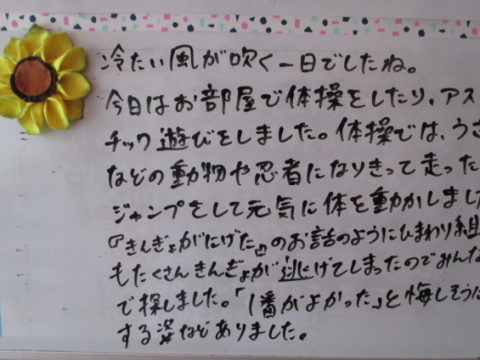 冷たい風が吹く一日でしたね。
今日はお部屋で体操をしたり、アス
チック遊びをしました。体操では、うさ
などの動物や忍者になりきって走った
ジャンプをして元気に体を動かしまし
『きんぎょがにげた』のお話のようにひまわり組
もたくさんきんぎょが逃げてしまったのでみんな
で探しました。「1番がよかった」と悔しそうに
する姿などありました。